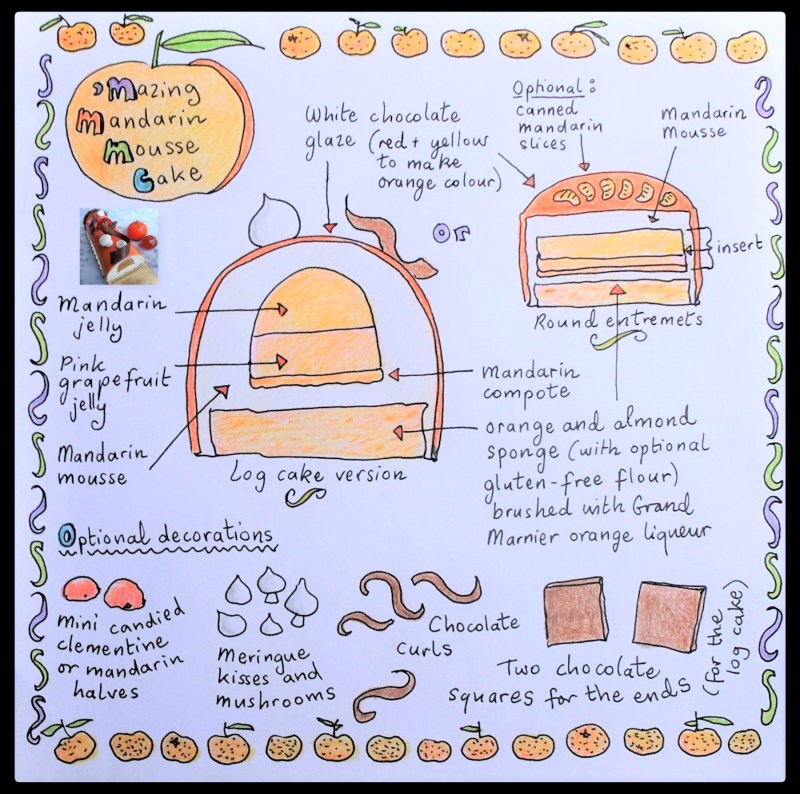 'Mazing
Mandarin
Mousse
Cake
White chocolate
glaze (red + yellow
to make
orange colour)
Optional:
canned
mandarin
slices
Mandarin
Mousse
or
insert
Round entremets
Mandarin
jelly
Pink
grapefruit
jelly
Mandarin
mousse
Log cake version
Mandarin
compote
orange and almond
sponge (with optional
gluten-free flour)
brushed with Grand
Marnier orange liqueur
Optional decorations
mini candied
clementine
or mandarin
halves
Meringue
kisses and
mushrooms
Chocolate
curls
Two chocolate
squares for the ends
(for the
log cake)